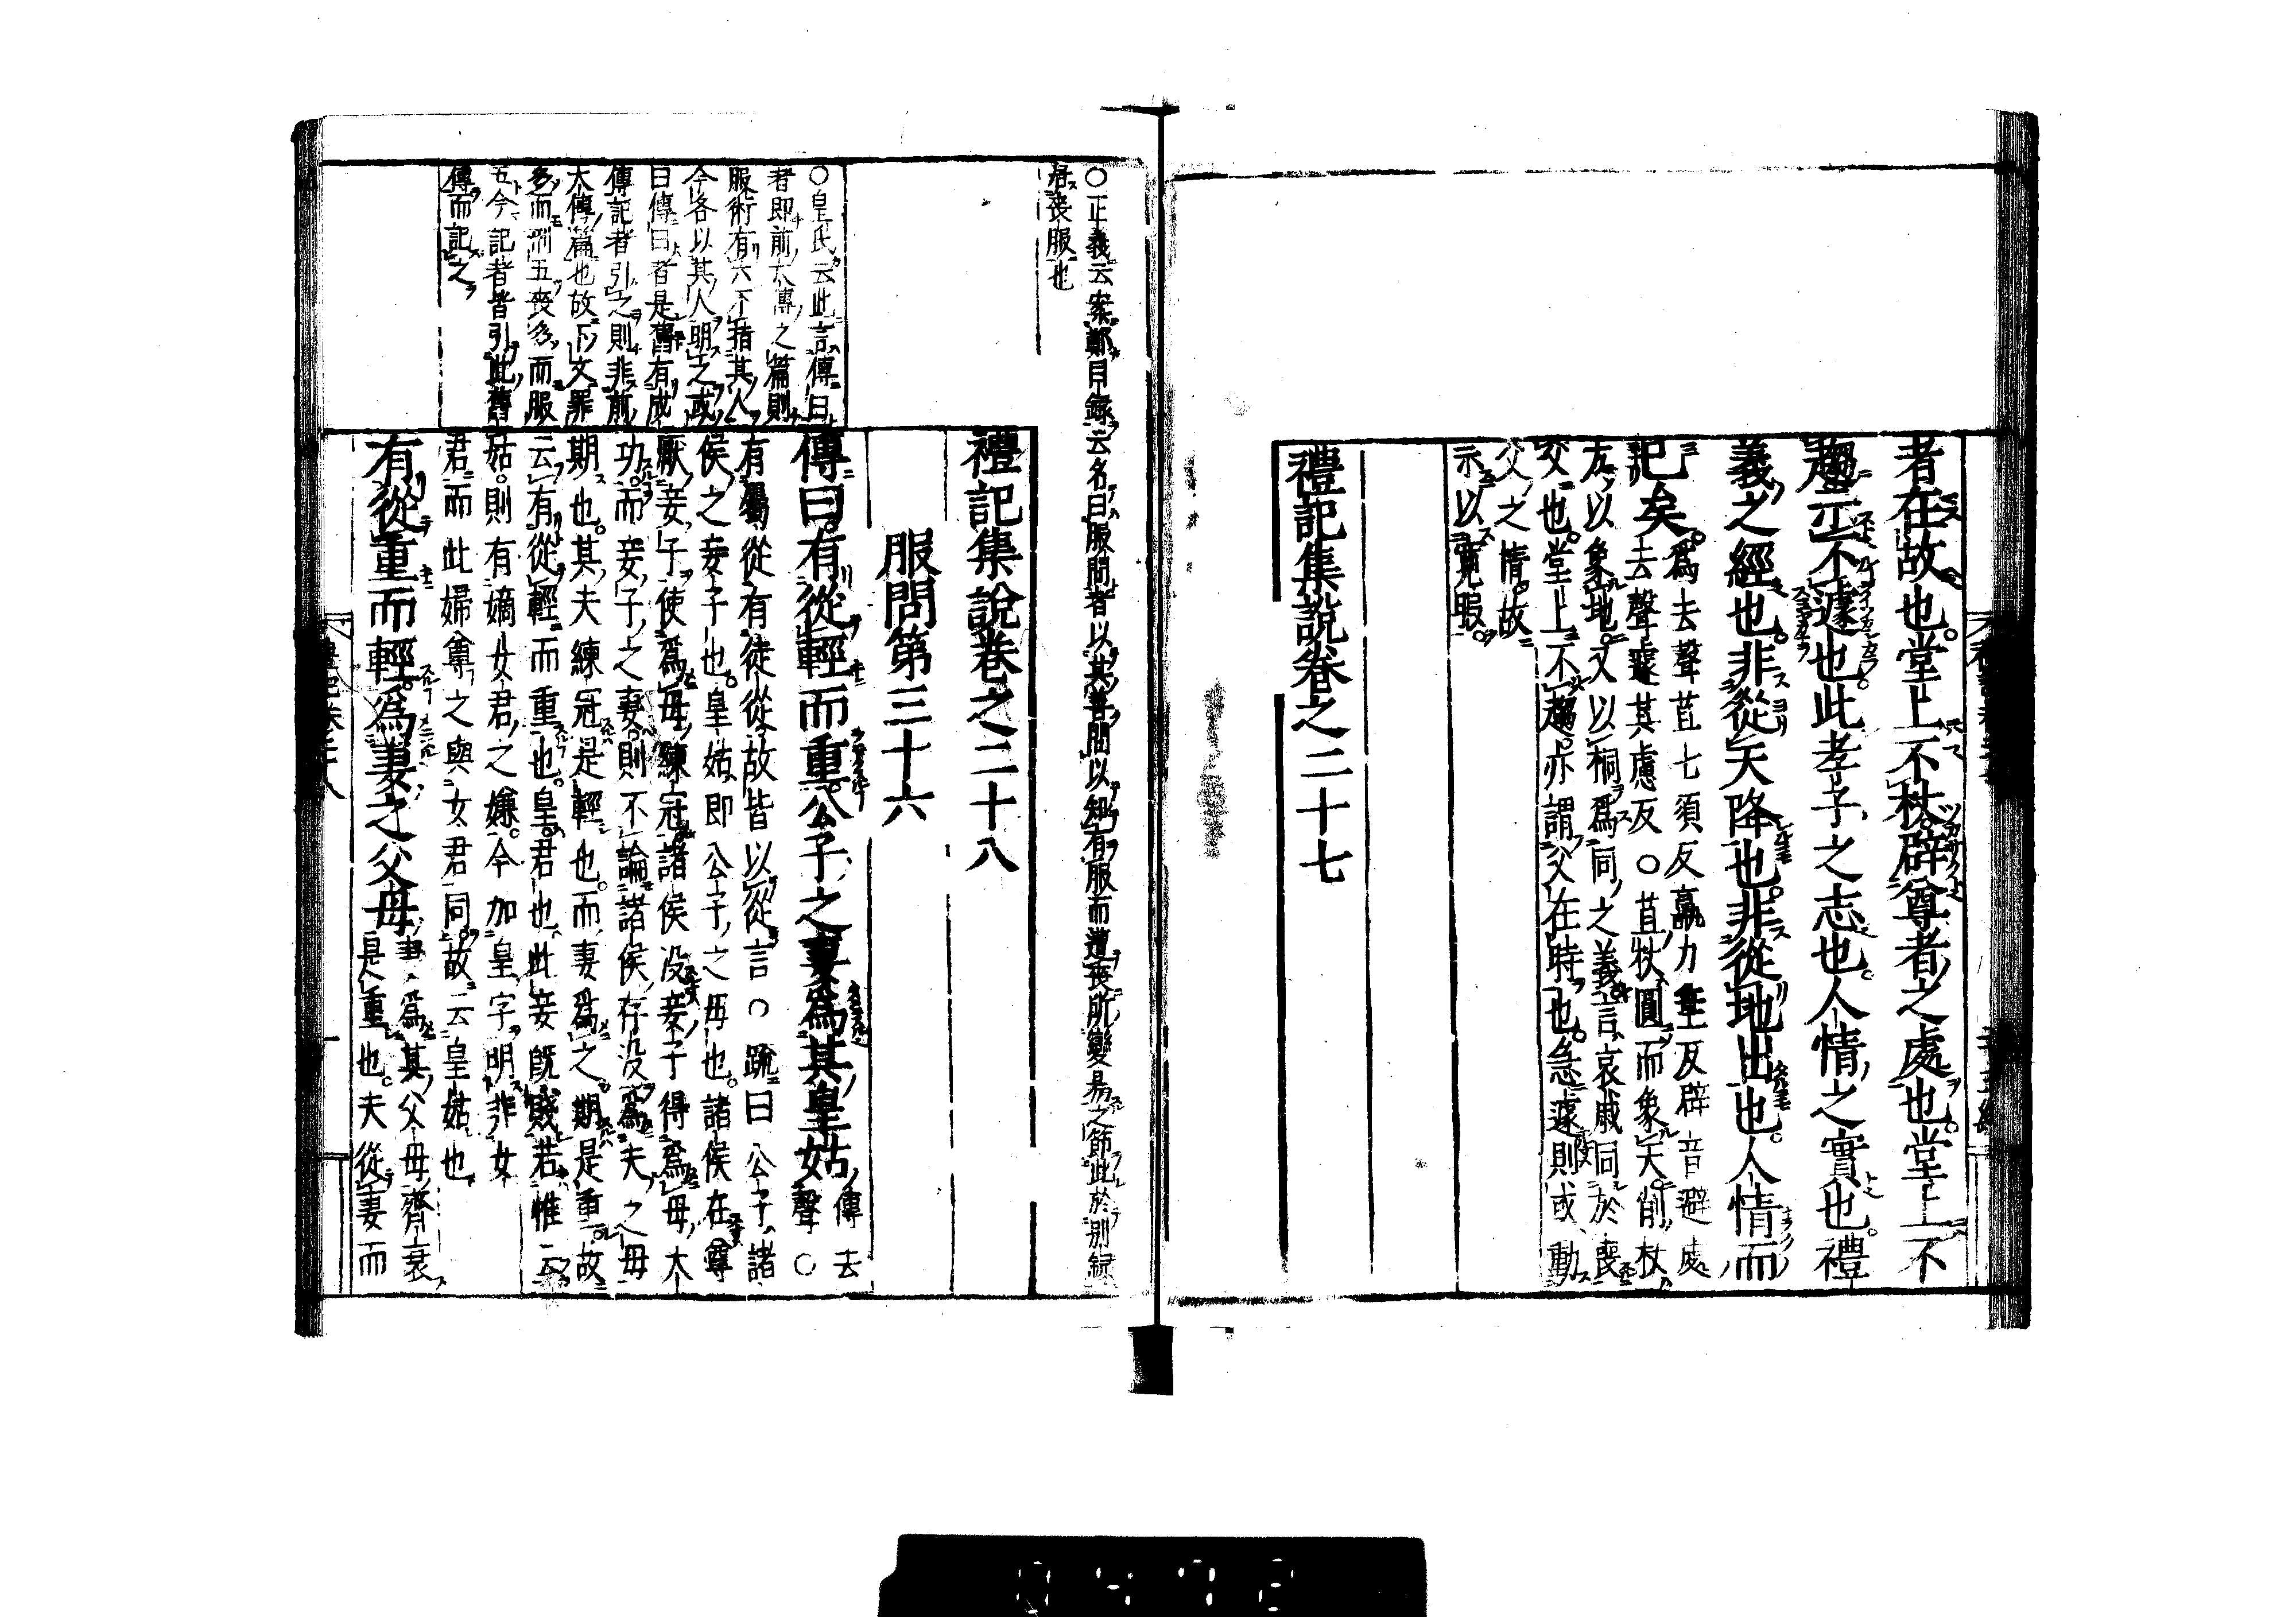 者在故也堂上不杖辟尊者之處也堂上不
趨示不遽也此孝子之志也人情之實也禮
義之經也非從天降也非從地出也人情而
已矣
爲去聲苴七須反羸力垂反辟音避處
去聲遽其慮反○苴杖圓而象天削杖
方以象地又以桐爲同之義言哀戚同於喪
父也堂上不趨亦謂父在時也急遽則或動
父之情故
示以寬暇
禮記集說卷之二十七
○正義云案鄭目録云名曰服問者以其善問以知有服而遭喪所變易之節此於別録
屬喪服也
禮記集說卷之二十八
服問第三十六
○皇氏云此言傳曰
者即前大傳之篇則
服術有六不指其人
今各以其人明之或
曰傳曰者是舊有成
傳記者引之則非前
大傳篇也故下文罪
多而刑五喪多而服
五今記者皆引此舊
傳而記之
傳曰有從輕而重公子之妻爲其皇姑
傳去
聲○
有屬從有徒從故皆以從言○疏曰公子諸
侯之妾子也皇姑即公子之母也諸侯在尊
厭妾子使爲母練冠諸侯没妾子得爲母大
功而妾子之妻則不論諸侯存没爲夫之母
期也其夫練冠是輕也而妻爲之期是重故
云有從輕而重也皇君也此妾既賤若惟云
姑則有嫡女君之嫌今加皇字明非女
君而此婦尊之與女君同故云皇姑也
有從重而輕爲妻之父母
妻爲其父母齊衰
是重也夫從妻而